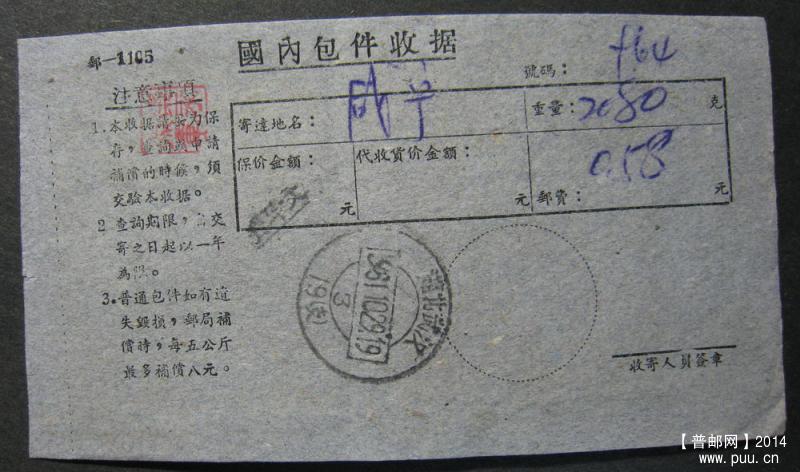 郵－1105
國內包件收据
號碼：
764
注意事項
1.本收据請妥为保
存，查詢或申請
補償的時候，須
交驗本收据。
2 查詢期限，自交
寄之日起以一年
為限。
3.普通包件如有遺
失毀損，郵局補
償時，每五公斤
最多補償八元。
寄達地名：
咸宁
重量：2080 克
保价金額：
元
代收貨价金額：
元
郵費：
0.58
元
湖北武汉
1961.10.29.19
3
19(支)
收寄人員簽章
【普邮网】2014
www.puu.cn